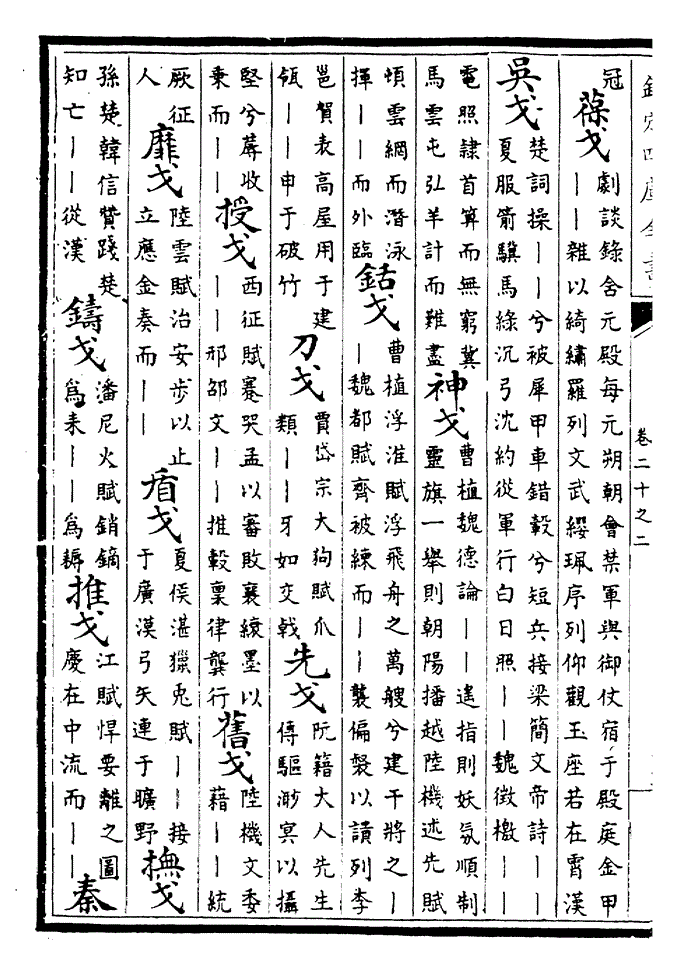 欽定四庫全書
卷二十之二
冠 葆戈 劇談錄舍元殿每元朔朝會禁軍與御仗宿于殿庭金甲
——雜以綺繡羅列文武纓珮序列仰觀玉座若在霄漢
吳戈 楚詞操——兮被犀甲車錯轂兮短兵接梁簡文帝詩——
夏服箭驥馬綠沉弓沈約從軍行白日照——魏徵檄——
電照隷首算而無窮冀
馬雲屯弘羊計而難盡
神戈 曹植魏德論——遙指則妖氛順制
靈旗一舉則朝陽播越陸機述先賦
頓雲網而潛泳
揮——而外臨
鈷戈 曹植浮淮賦浮飛舟之萬艘兮建干將之—
—魏都賦齊被練而——襲偏裻以讀列李
邕賀表高屋用于建
瓴——申于破竹
刀戈 賈岱宗大狗賦爪
類——牙如交戟
先戈 阮籍大人先生
傳驅渺冥以攝
堅兮蓐收
秉而——
授戈 西征賦蹇哭孟以審敗襄縗墨以
——邢邵文——推轂稟律龔行
舊戈 陸機文委
藉——統
厥征
人
靡戈 陸雲賦治安步以止
立應金奏而——
盾戈 夏侯湛獵兔賦——接
于廣漠弓矢連于曠野
撫戈
孫楚韓信贊踐楚
知亡——從漢
鑄戈 潘尼火賦銷鏑
為耒——為耨
推戈 江賦悍要離之圖
慶在中流而——
秦